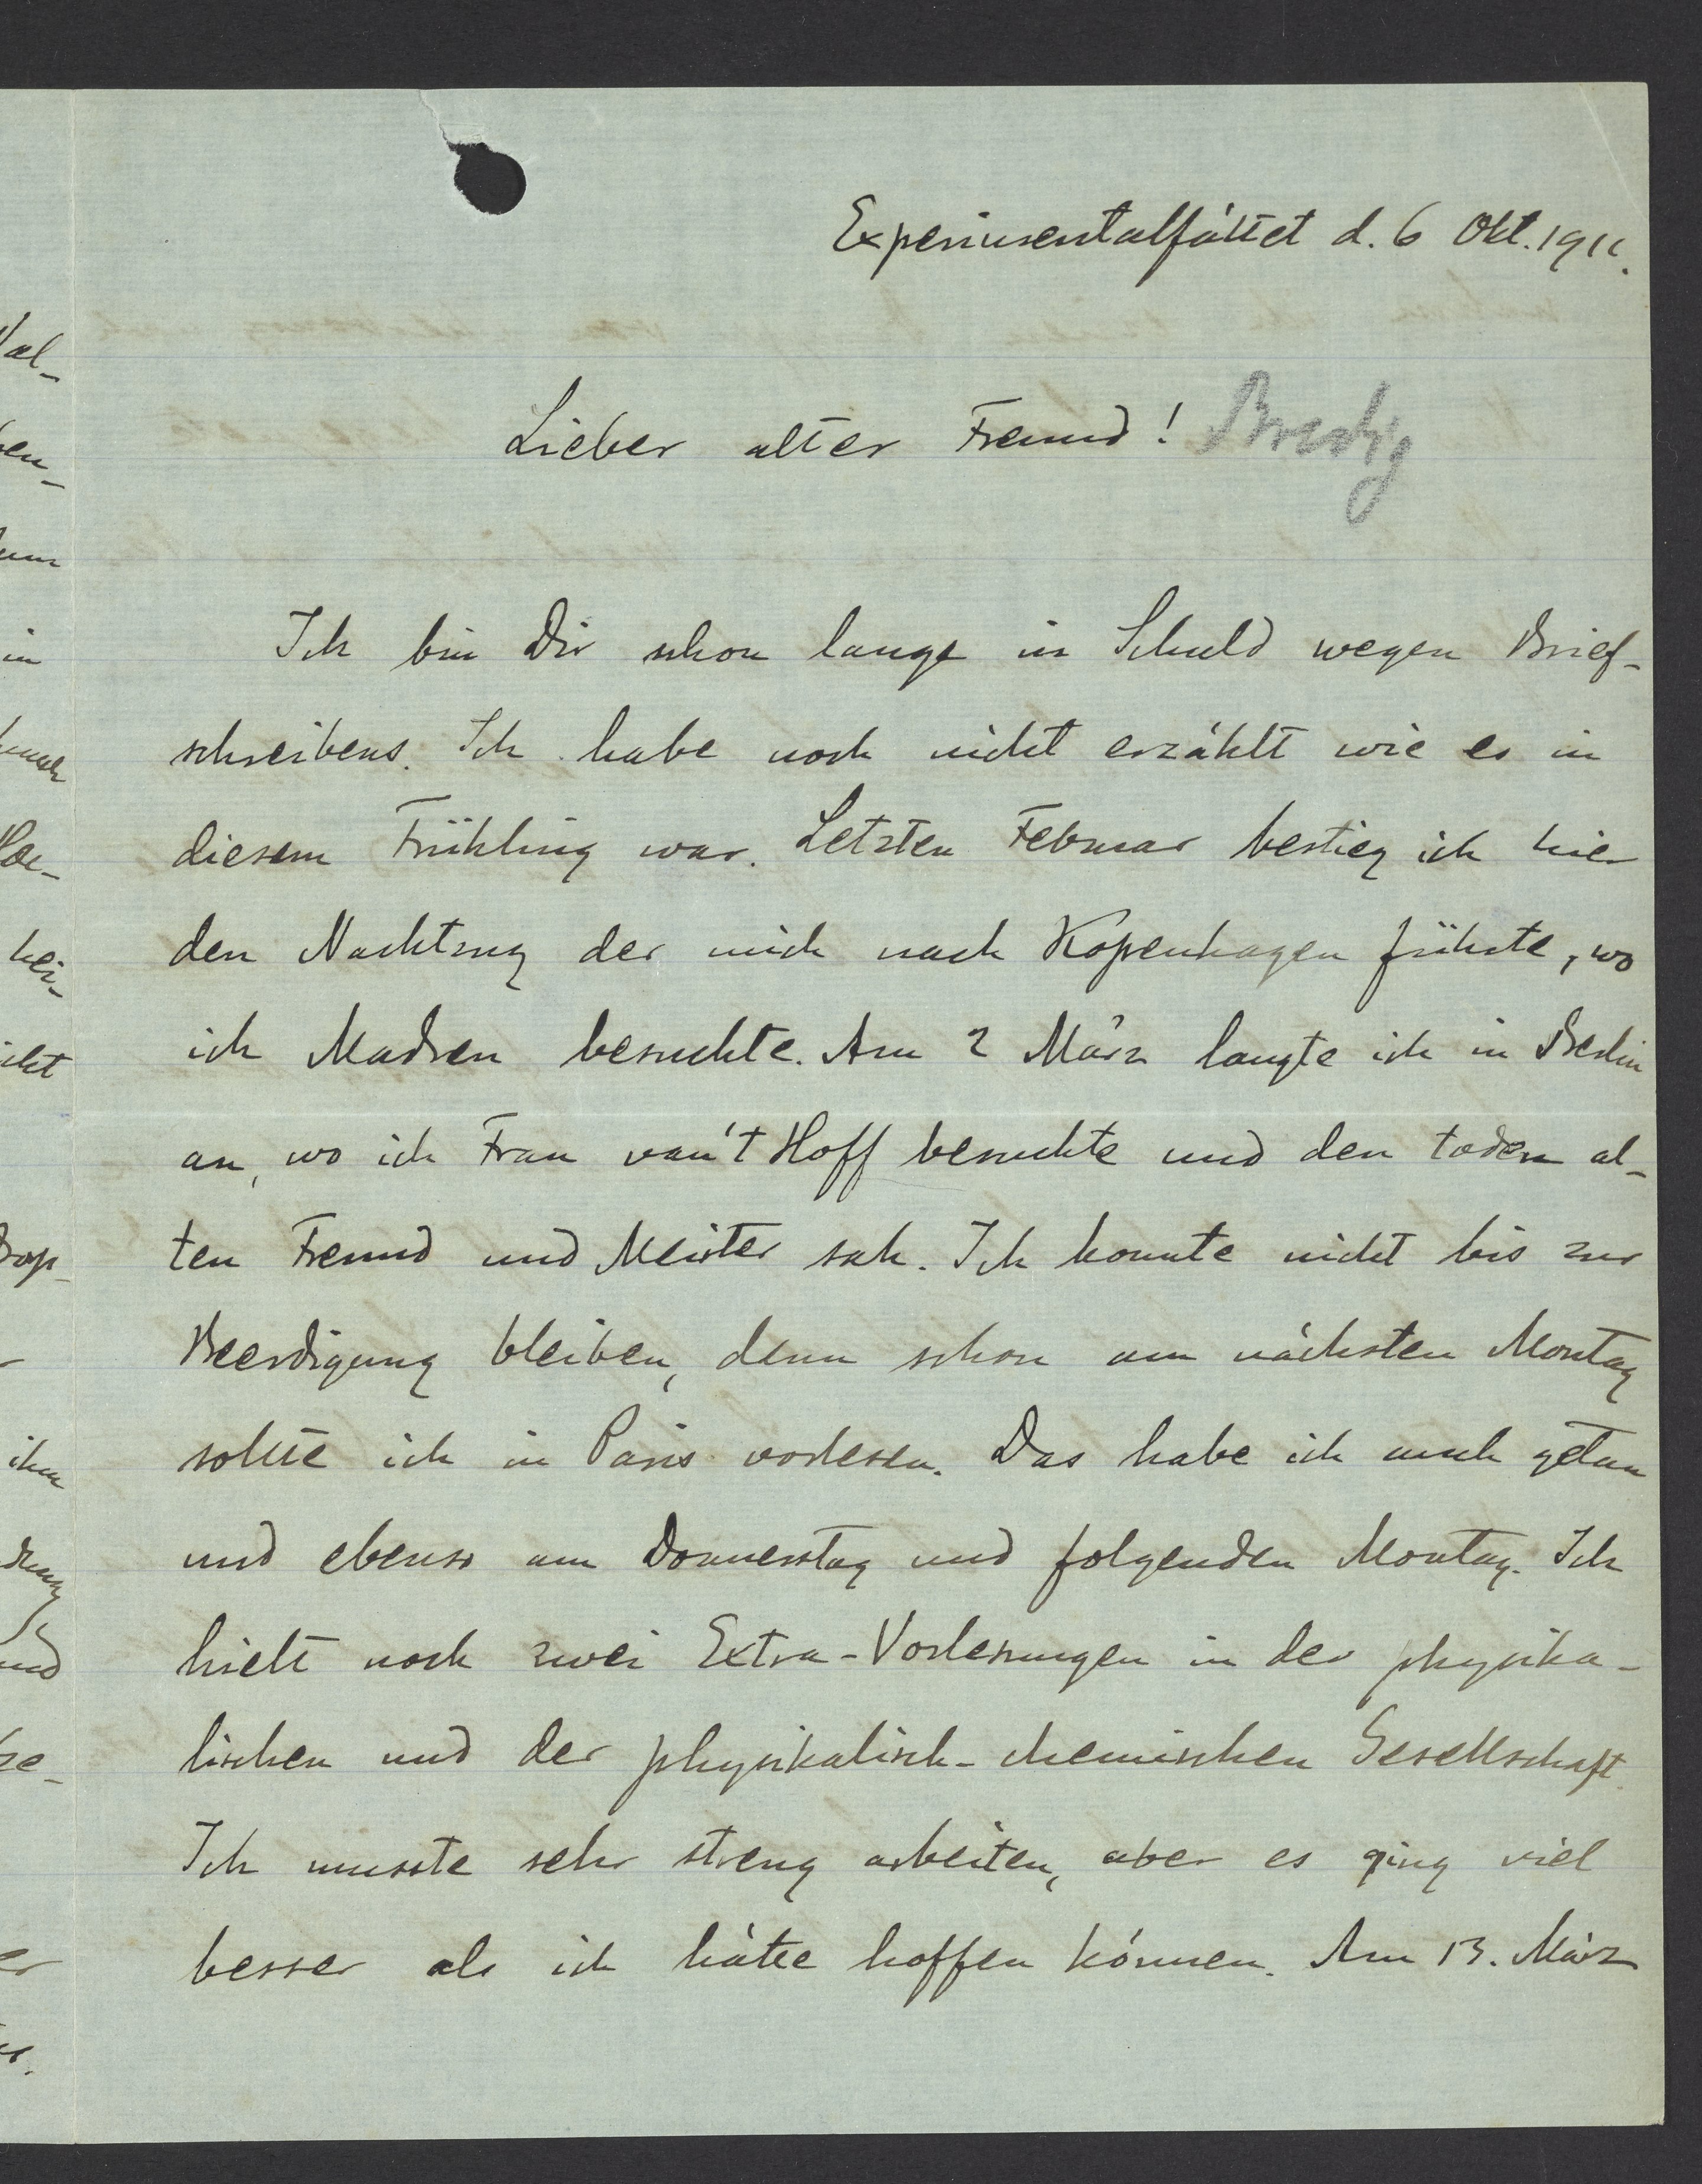 Experimentalfältet d. 6 Okt. 1911.
Lieber alter Freund! Bredig
Ich bin Dir schon lange in Schuld wegen Brief-
schreibens. Ich habe noch nicht erzählt wie es in
diesem Frühling war. Letzten Februar bestieg ich hier
den Nachtzug der mich nach Kopenhagen führte, wo
ich Madsen besuchte. Am 2 März langte ich in Berlin
an, wo ich Frau van't Hoff besuchte und den toden al-
ten Freund und Meister sah. Ich konnte nicht bis zur
Beerdigung bleiben, denn schon am nächsten Montag
sollte ich in Paris vorlesen. Das habe ich auch getan
und ebenso am Donnerstag und folgenden Montag. Ich
hielt noch zwei Extra-Vorlesungen in der physika-
lischen und der physikalisch-chemischen Gesellschaft.
Ich musste sehr streng arbeiten, aber es ging viel
besser als ich hätte hoffen können. Am 13. März